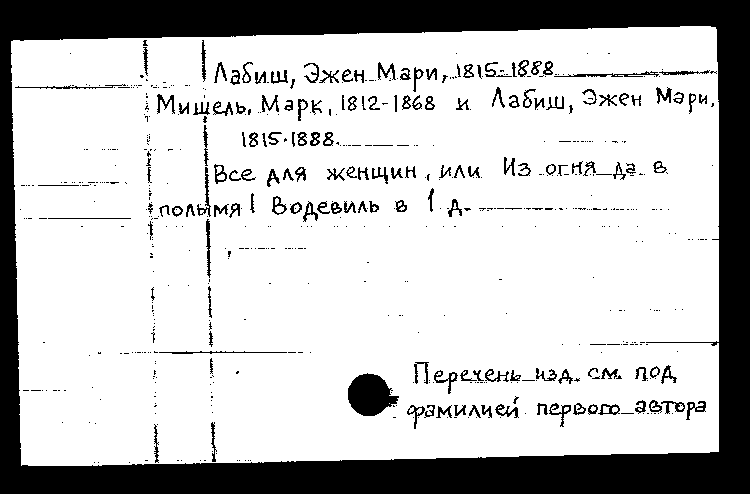 Лабиш, Эжен Мари, 1815-1888
Мишель, Марк, 1812-1868 и Лабиш, Эжен Мари,
1815-1888.
Все для женщин, или Из огня да в
полымя! Водевиль в 1 д.
Перечень изд. см. под
фамилией первого автора